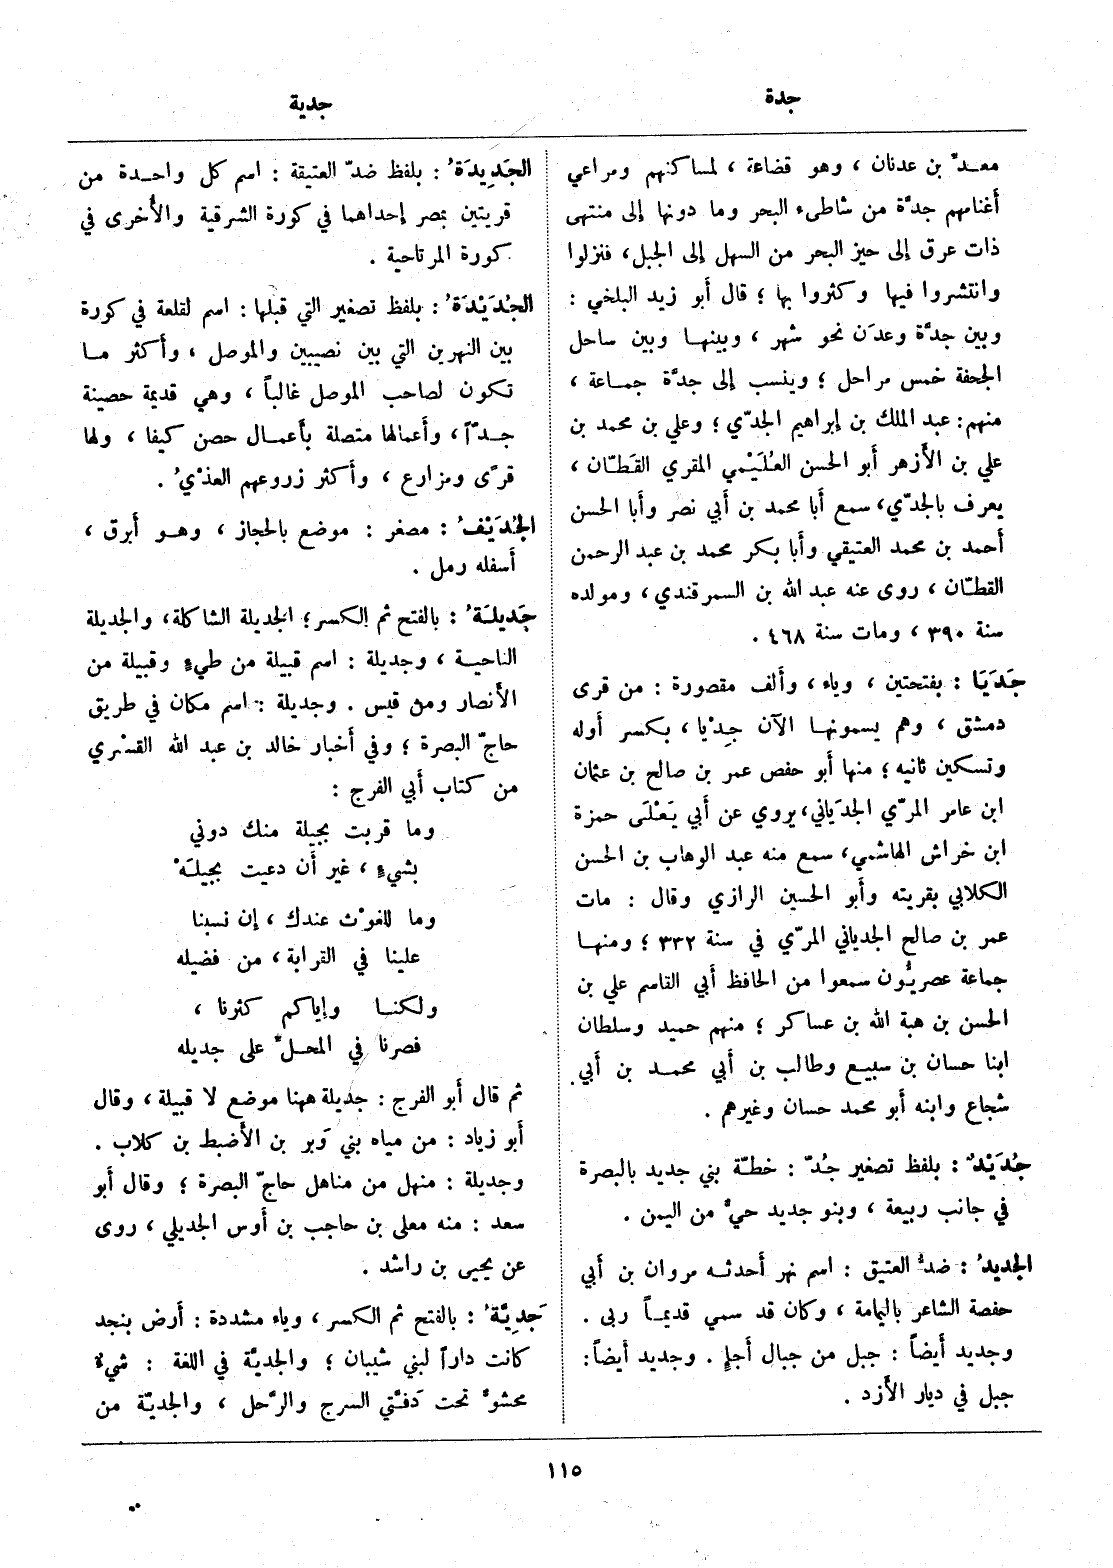 جدة
جدية
معدّ بن عدنان ، وهو قضاعة ، لمساكنهم ومراعي
أغنامهم جدّة من شاطىء البحر وما دونها إلى منتهى
ذات عرق إلى حيز البحر من السهل إلى الجبل، فنزلوا
وانتشروا فيها وكثروا بها ؛ قال أبو زيد البلخي :
وبين جدّة وعدَن نحو شهر ، وبينهـا وبين ساحل
الجحفة خمس مراحل ؛ وينسب إلى جدّة جمـاعة ،
منهم: عبد الملك بن إبراهيم الجدّي ؛ وعلي بن محمد بن
علي بن الأزهر أبو الحسن العُلَيْمي المقري القَطّان ،
يعرف بالجدّي، سمع أبا محمد بن أبي نصر وأبا الحسن
أحمد بن محمد العتيقي وأبا بكر محمد بن عبد الرحمن
القطّان ، روى عنه عبد الله بن السمرقندي ، ومولده
سنة ٣٩٠ ، ومات سنة ٤٦٨ .
جَدَيَا : بفتحتين ، وياء ، وألف مقصورة : من قرى
دمشق ، وهم يسمونهـا الآن جِدْيا ، بكسر أوله
وتسكين ثانيه ؛ منها أبو حفص عمر بن صالح بن عثمان
ابن عامر المرّي الجدَياني، يروي عن أبي يَعْلَى حمزة
ابن خراش الهاشمي، سمع منه عبد الوهاب بن الحسن
الكلابي بقريته وأبو الحسين الرازي وقال : مات
عمر بن صالح الجدياني المرّي في سنة ٣٣٢ ؛ ومنهـا
جماعة عصريّون سمعوا من الحافظ أبي القاسم علي بن
الحسن بن هبة الله بن عساكر ؛ منهم حميد وسلطان
ابنا حسان بن سبيع وطالب بن أبي محمـد بن أبي
شجاع وابنه أبو محمد حسان وغيرهم .
جُدَيْدٌ : بلفظ تصغير جُدّ : خطّة بني جديد بالبصرة
في جانب ربيعة ، وبنو جديد حيّ من اليمن .
الجديدُ : ضدّ العتيق : اسم نهر أحدثـه مروان بن أبي
حفصة الشاعر باليمامة ، وكان قد سمي قديمـاً ربى .
وجديد أيضاً : جبل من جبال أجإٍ . وجديد أيضاً:
جبل في ديار الأزد .
الجَدِيدَةُ : بلفظ ضدّ العتيقة : اسم كل واحـدة من
قريتين بمصر إحداهما في كورة الشرقية والأُخرى في
كورة المرتاحية .
الجُدَيْدَةُ : بلفظ تصغير التي قبلها : اسم لقلعة في كورة
بين النهرين التي بين نصيبين والموصل ، وأكثر مـا
تكون لصاحب الموصل غالباً ، وهي قديمة حصينة
جـدّاً ، وأعمالها متصلة بأعمـال حصن كيفا ، ولها
قرًى ومزارع ، وأكثر زروعهم العذْيُ .
الجُدَيْفُ : مصغر : موضع بالحجاز ، وهـو أبرق ،
أسفله رمل .
جَديلَةُ : بالفتح ثم الكسر ؛ الجديلة الشاكلة، والجديلة
الناحيـة ، وجديلة : اسم قبيلة من طيءٍ وقبيلة من
الأنصار ومن قيس . وجديلة : اسم مكان في طريق
حاجّ البصرة ؛ وفي أخبار خالد بن عبد الله القسْري
من كتاب أبي الفرج :
وما قربت بجيلة منك دوني
بشيءٍ ، غير أن دعيت بجيلَهْ
وما للغوْث عندك ، إن نسبنا
علينا في القرابة ، من فضيله
ولكنـا وإياكم كثرنا ،
فصرنا في المحلّ على جديله
ثم قال أبو الفرج : جديلة ههنا موضع لا قبيلة ، وقال
أبو زياد : من مياه بني وَبر بن الأضبط بن كلاب .
وجديلة : منهل من مناهل حاجّ البصرة ؛ وقال أبو
سعد : منه معلى بن حاجب بن أوس الجديلي ، روى
عن يحيى بن راشد .
جَدِيَّةُ : بالفتح ثم الكسر ، وياء مشددة : أرض بنجد
كانت داراً لبني شيبان ؛ والجديّة في اللغة : شيءٌ
محشوّ تحت دَفَّتي السرج والرَّحل ، والجديّة من
١١٥